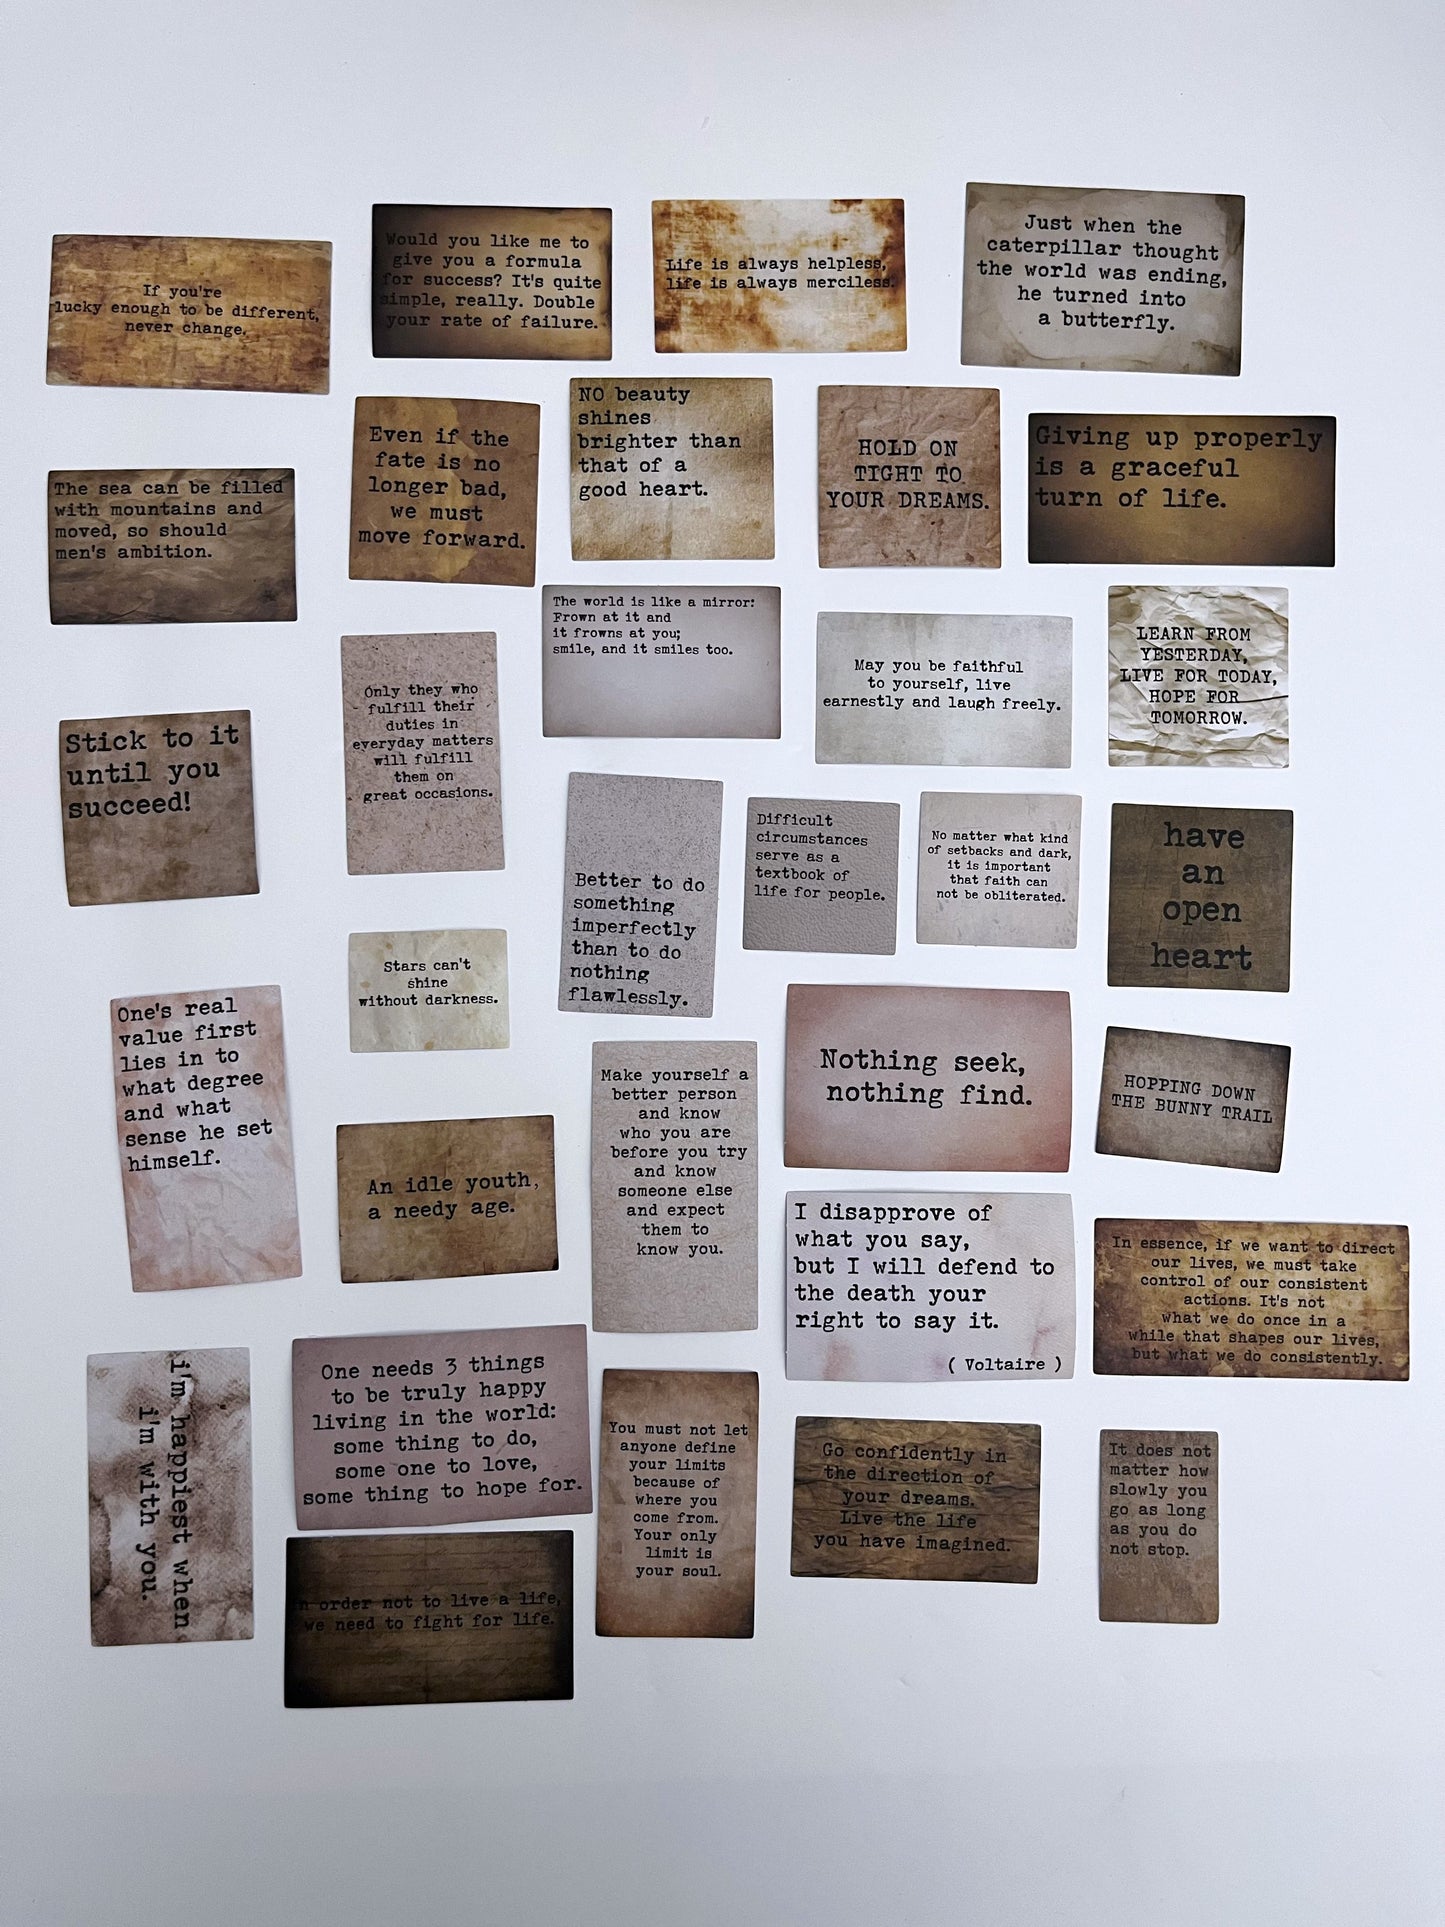 If you're
lucky enough to be different,
never change.
Would you like me to
give you a formula
for success? It's quite
simple, really. Double
your rate of failure.
Life is always helpless,
life is always merciless.
Just when the
caterpillar thought
the world was ending,
he turned into
a butterfly.
The sea can be filled
with mountains and
moved, so should
men's ambition.
Even if the
fate is no
longer bad,
we must
move forward.
NO beauty
shines
brighter than
that of a
good heart.
HOLD ON
TIGHT TO
YOUR DREAMS.
Giving up properly
is a graceful
turn of life.
Stick to it
until you
succeed!
Only they who
fulfill their
duties in
everyday matters
will fulfill
them on
great occasions.
The world is like a mirror:
Frown at it and
it frowns at you;
smile, and it smiles too.
May you be faithful
to yourself, live
earnestly and laugh freely.
LEARN FROM
YESTERDAY,
LIVE FOR TODAY,
HOPE FOR
TOMORROW.
Better to do
something
imperfectly
than to do
nothing
flawlessly.
Difficult
circumstances
serve as a
textbook of
life for people.
No matter what kind
of setbacks and dark,
it is important
that faith can
not be obliterated.
have
an
open
heart
Stars can't
shine
without darkness.
One's real
value first
lies in to
what degree
and what
sense he set
himself.
An idle youth,
a needy age.
Make yourself a
better person
and know
who you are
before you try
and know
someone else
and expect
them to
know you.
Nothing seek,
nothing find.
HOPPING DOWN
THE BUNNY TRAIL
I disapprove of
what you say,
but I will defend to
the death your
right to say it.
( Voltaire )
In essence, if we want to direct
our lives, we must take
control of our consistent
actions. It's not
what we do once in a
while that shapes our lives,
but what we do consistently.
i'm happiest when
i'm with you.
One needs 3 things
to be truly happy
living in the world:
some thing to do,
some one to love,
some thing to hope for.
In order not to live a life,
we need to fight for life.
You must not let
anyone define
your limits
because of
where you
come from.
Your only
limit is
your soul.
Go confidently in
the direction of
your dreams.
Live the life
you have imagined.
It does not
matter how
slowly you
go as long
as you do
not stop.